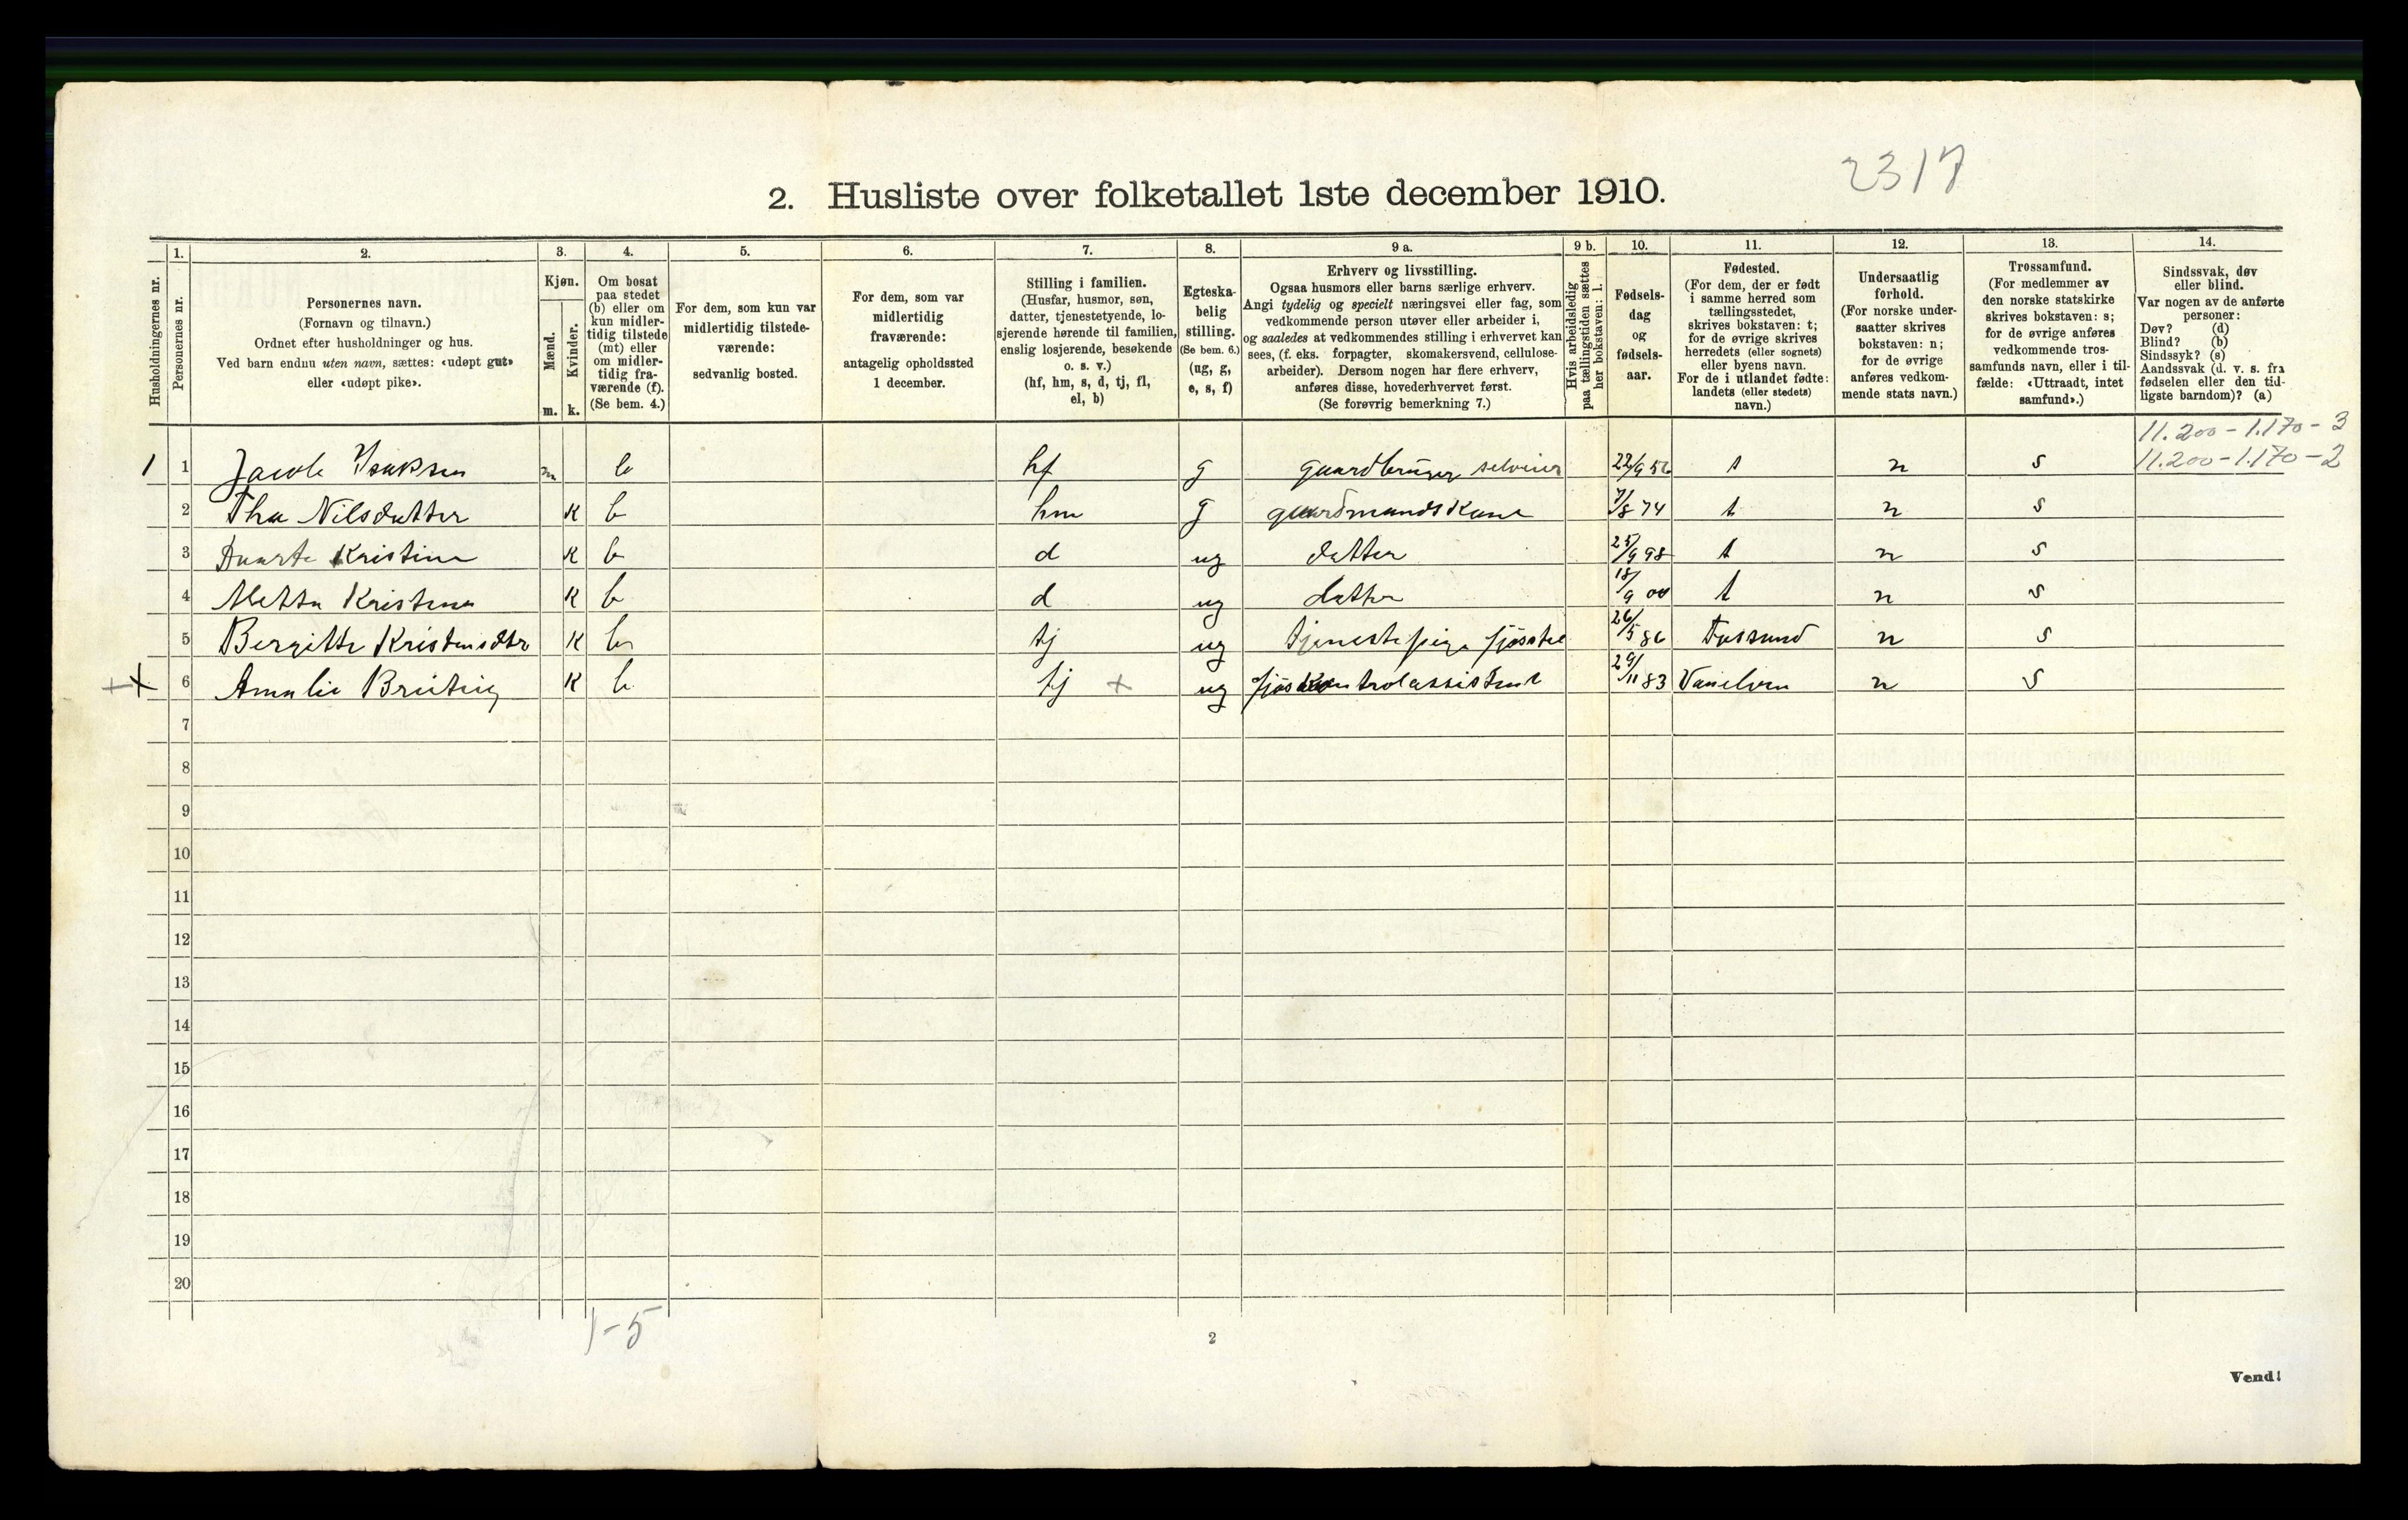 2317
2. Husliste over folketallet 1ste december 1910.
Husholdningernes nr.
1.
Personernes nr.
2.
Personernes navn.
(Fornavn og tilnavn.)
Ordnet efter husholdninger og hus.
Ved barn endnu uten navn, sættes: «udøpt gut»
eller «udøpt pike».
3.
Kjøn.
Mænd.
Kvinder.
m. k.
4.
Om bosat
paa stedet
(b) eller om
kun midler-
tidig tilstede
(mt) eller
om midler-
tidig fra-
værende (f).
(Se bem. 4.)
5.
For dem, som kun var
midlertidig tilstede-
værende:
sedvanlig bosted.
6.
For dem, som var
midlertidig
fraværende:
antagelig opholdssted
1 december.
7.
Stilling i familien.
(Husfar, husmor, søn,
datter, tjenestetyende, lo-
sjerende hørende til familien,
enslig losjerende, besøkende
o. s. v.)
(hf, hm, s, d, tj, fl,
el, b)
8.
Egteska-
belig
stilling.
(Se bem. 6.)
(ug, g,
e, s, f)
9 a.
Erhverv og livsstilling.
Ogsaa husmors eller barns særlige erhverv.
Angi tydelig og specielt næringsvei eller fag, som
vedkommende person utøver eller arbeider i,
og saaledes at vedkommendes stilling i erhvervet kan
sees, (f. eks. forpagter, skomakersvend, cellulose-
arbeider). Dersom nogen har flere erhverv,
anføres disse, hovederhvervet først.
(Se forøvrig bemerkning 7.)
9 b.
Hvis arbeidsledig
paa tællingstiden sættes
her bokstaven: l.
10.
Fødsels-
dag
og
fødsels-
aar.
11.
Fødested.
(For dem, der er født
i samme herred som
tællingsstedet,
skrives bokstaven: t;
for de øvrige skrives
herredets (eller sognets)
eller byens navn.
For de i utlandet fødte:
landets (eller stedets)
navn.)
12.
Undersaatlig
forhold.
(For norske under-
saatter skrives
bokstaven: n;
for de øvrige
anføres vedkom-
mende stats navn.)
13.
Trossamfund.
(For medlemmer av
den norske statskirke
skrives bokstaven: s;
for de øvrige anføres
vedkommende tros-
samfunds navn, eller i til-
fælde: «Uttraadt, intet
samfund».)
14.
Sindssvak, døv
eller blind.
Var nogen av de anførte
personer:
Døv? (d)
Blind? (b)
Sindssyk? (s)
Aandssvak (d. v. s. fra
fødselen eller den tid-
ligste barndom)? (a)
11.200-1.170-3
1 1 Jacob Isaksen m b hf g gaardbruger selveier 22/9 56 t n s 11.200-1.170-2
2 Thea Nilsdatter K b hm g gaardmandskone 7/8 74 t n s
3 Kristine K b d ug datter 25/9 98 t n s
4 Metta Kristina K b d ug datter 18/9 00 t n s
5 Bergitte Kristensdtr K b tj ug tjenestepige fjösstel 26/5 86 Fossund n s
+ + 6 Amalie K b tj + ug fjöskontrolassistent 29/11 83 Vanelven n s
7
8
9
10
11
12
13
14
15
16
17
18
19
20
1-5
2
Vend!